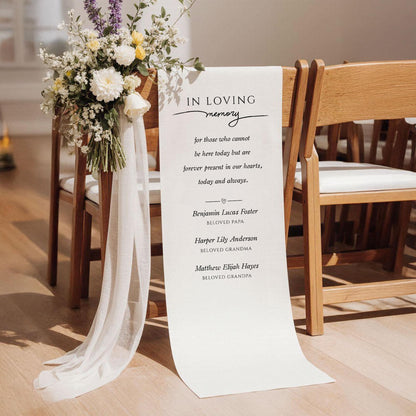 IN LOVING
memory
for those who cannot
be here today but are
forever present in our hearts,
today and always.
Benjamin Lucas Foster
BELOVED PAPA
Harper Lily Anderson
BELOVED GRANDMA
Matthew Elijah Hayes
BELOVED GRANDPA